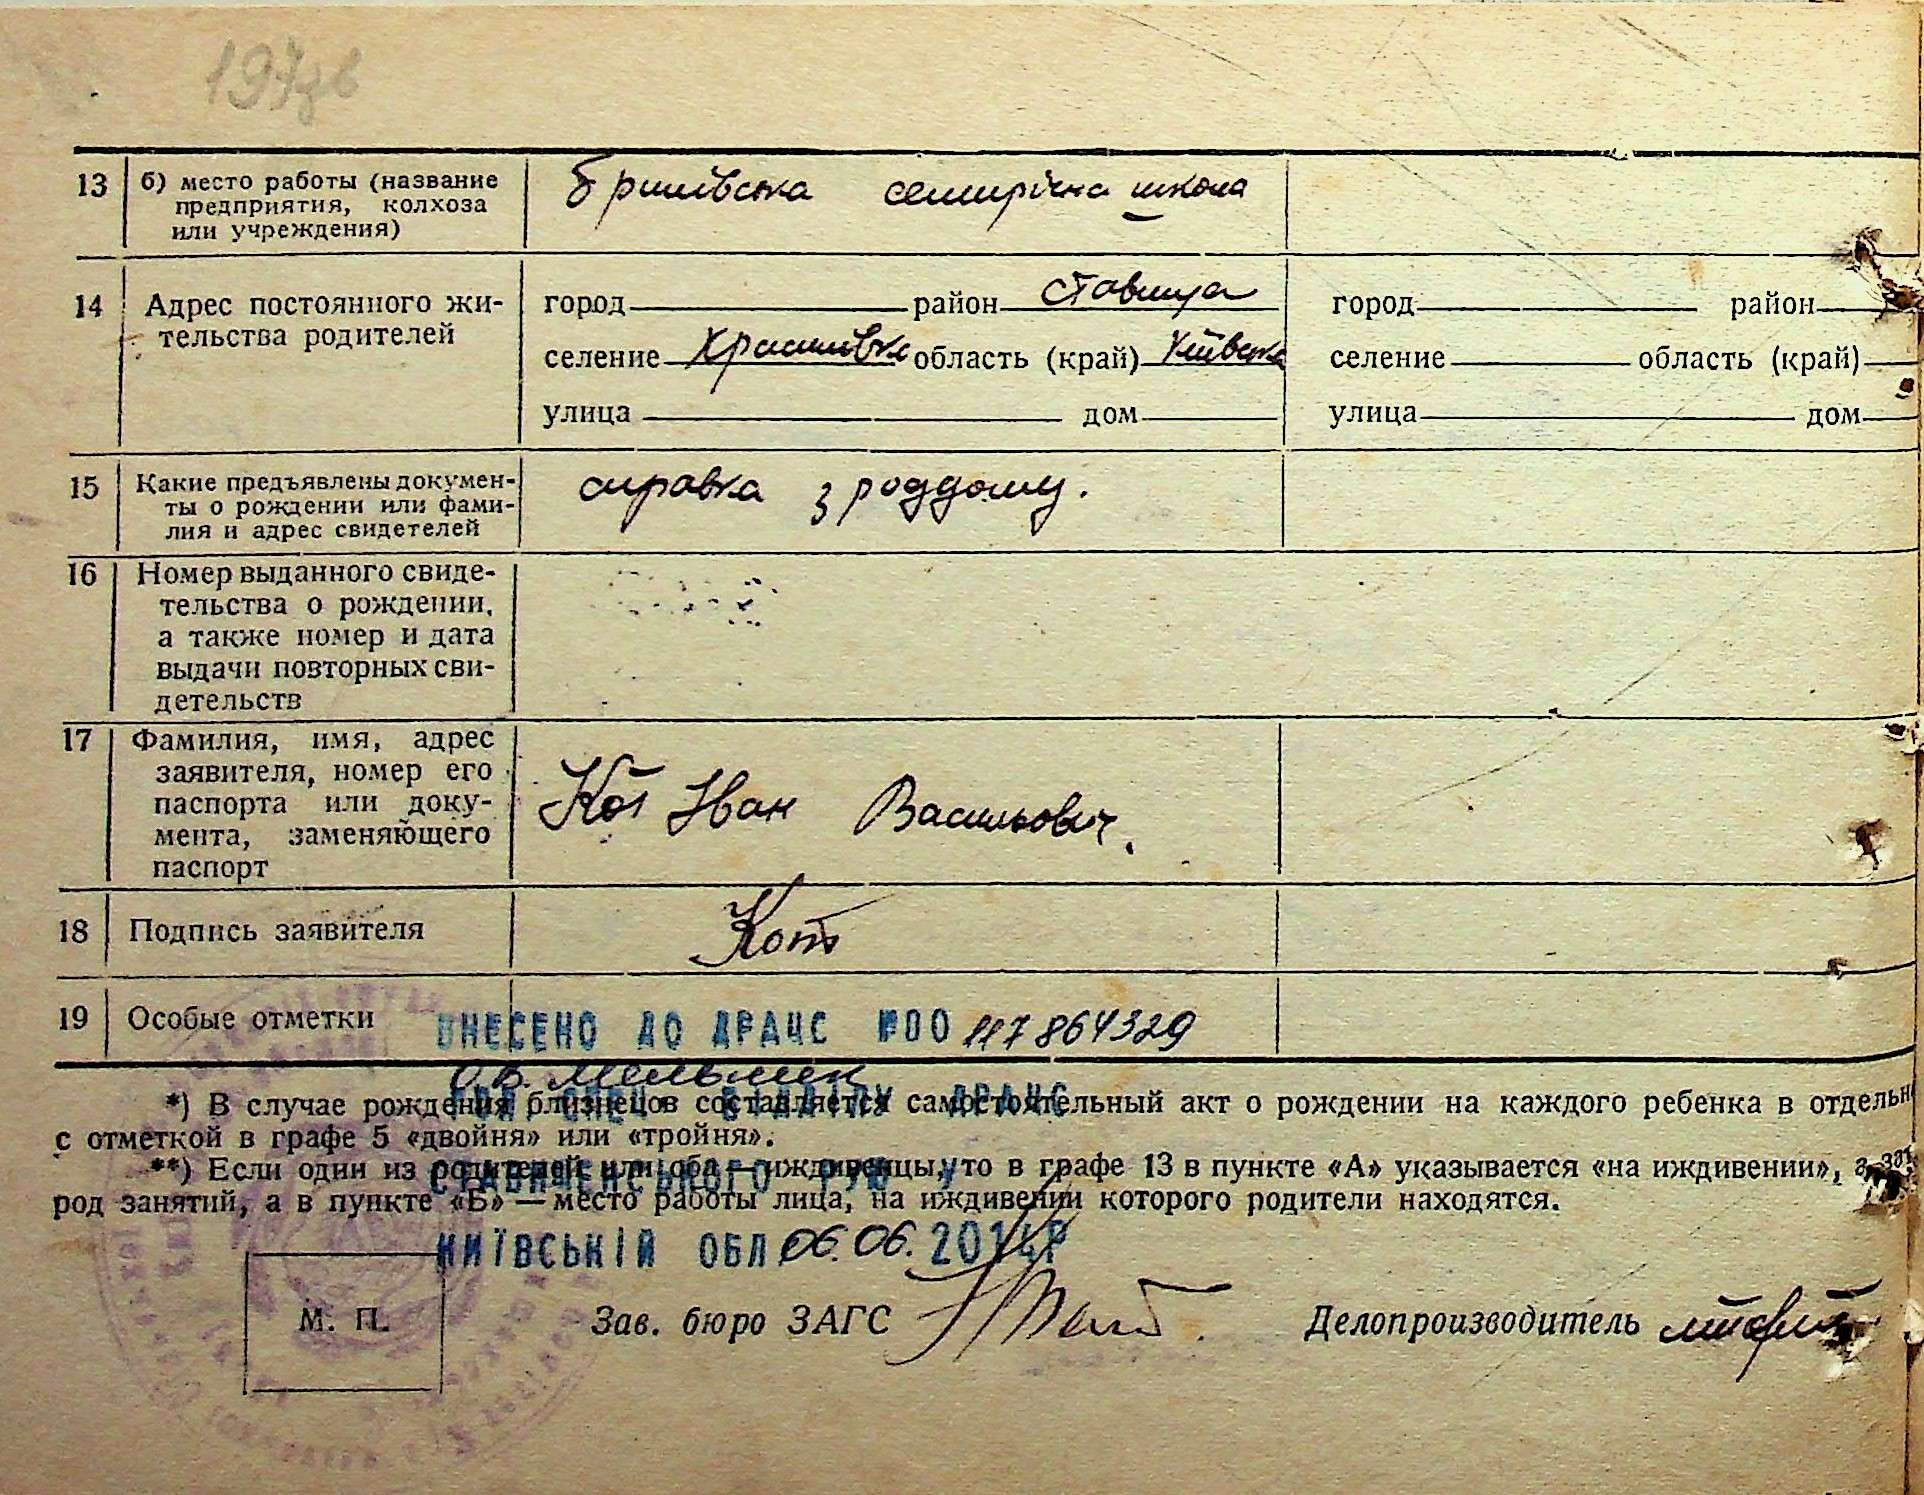 197зв
13 б) место работы (название предприятия, колхоза или учреждения) семирічна школа
14 Адрес постоянного жительства родителей
город район Ставище город район
селение область (край) Київська селение область (край)
улица дом улица дом
15 Какие предъявлены докумен-
ты о рождении или фами-
лия и адрес свидетелей
справка з роддому.
16 Номер выданного свиде-
тельства о рождении,
а также номер и дата
выдачи повторных сви-
детельств
17 Фамилия, имя, адрес
заявителя, номер его
паспорта или доку-
мента, заменяющего
паспорт
Кот Іван Васильович.
18 Подпись заявителя Кот
19 Особые отметки ВНЕСЕНО ДО ДРАЦС №00 117864329
О.В. Мельник
*) В случае рождения близнецов составляется самостоятельный акт о рождении на каждого ребенка в отдельн
с отметкой в графе 5 «двойня» или «тройня».
**) Если один из родителей или оба — иждивенцы, то в графе 13 в пункте «А» указывается «на иждивении»,
род занятий, а в пункте «Б» — место работы лица, на иждивении которого родители находятся.
СТАВИЩЕНСЬКОГО РУЮ У
КИЇВСЬКІЙ ОБЛ 06.06. 2014Р
М. П. Зав. бюро ЗАГС Делопроизводитель